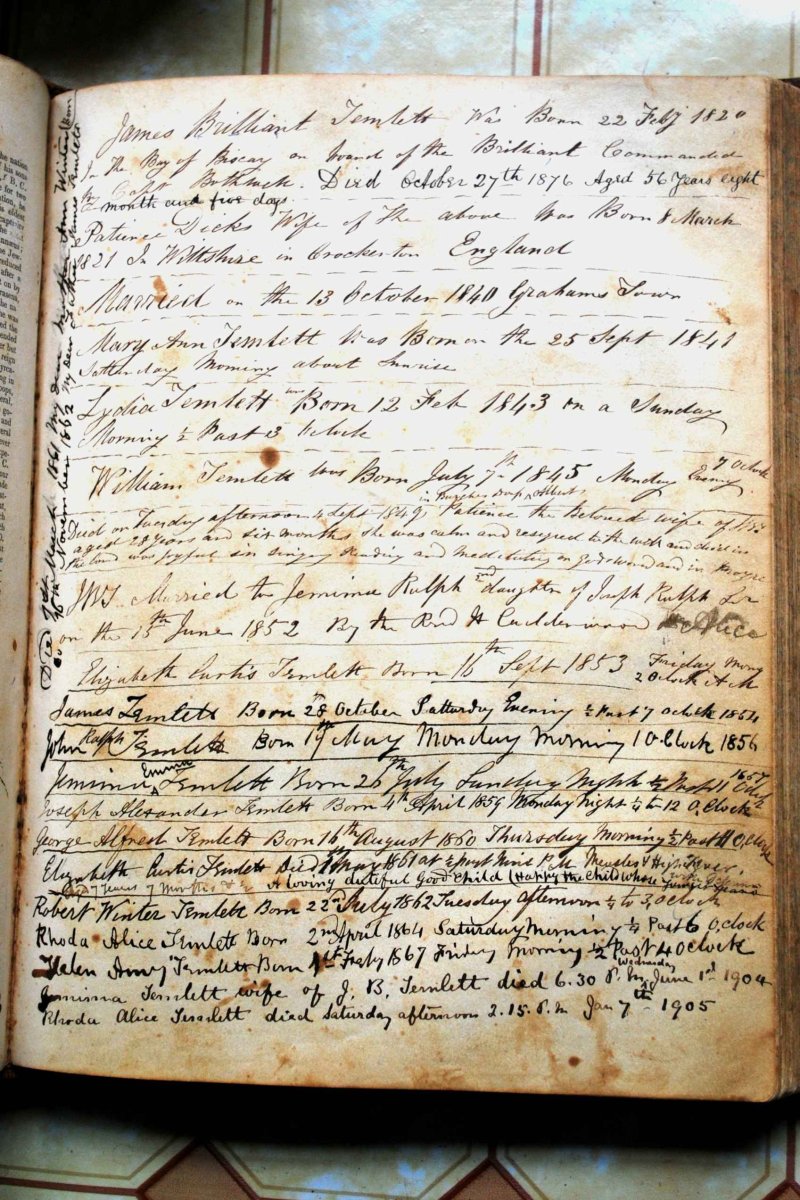 James Brilliant Temlett Was Born 22 Feby 1820
In the Bay of Biscay on board of the Brilliant Commanded
by Capt Died October 27th 1876 Aged 56 Years eight
month and five days.
Patience Dicks Wife of the above Was Born 8 March
1821 In Wiltshire in Crockerton England
Married on the 13 October 1840 Grahams Town
Mary Ann Temlett Was Born on the 25 Sept 1841
Satturday Morning about Sunrise
Lydia Temlett was Born 12 Feb 1843 on a Sunday
Morning ½ Past 3 oclock
William Temlett was Born July 7th 1845 Monday Evening 7 oclock
in Burghersdorp, Albert,
Died on Tuesday afternoon 4 Sept 1849, Patience the Beloved wife of
aged 28 years and six months she was calm and resigned to the and died in
the Lord was joyful in singing Reading and meditating on Gods word and in prayer
Married to Jemima Ralph 2nd daughter of Joseph Ralph Snr
on the 15th June 1852 By the Revd H Calderwood Alice
Elizabeth Curtis Temlett Born 16th Sept 1853 Friday Morng
2 Oclock A M
James Temlett Born 28 October Satturday Evening ½ Past 7 oclock 1854
John Ralph Temlett Born 19th May Monday Morning 1 O.Clock 1856
Jemima Emma Temlett Born 26th July Sunday Night ½ Past 11 Oclock 1857
Joseph Alexander Temlett Born 4th April 1859 Monday Night ¼ to 12 O,Clock
George Alfred Temlett Born 16th August 1860 Thursday Morning ½ Past 11 O,Clock
Elizabeth Curtis Temlett Died May 1861 at Nine P.M. Measles & High Fever,
Aged 7 Years 7 Months A loving dutiful Good Child (Happy the Child whose Years
Robert Winter Temlett Born 22nd July 1862 Tuesday afternoon ¼ to 3, O clock
Rhoda Alice Temlett Born 2nd April 1864 Saturday Morning ¼ Past 6 O,clock
Helen Amy Temlett Born 1st Feby 1867 Friday Morning ½ Past 4 Oclock
Jemima Temlett wife of J. B. Temlett died 6.30 P.M. Wednesday June 1st 1904
Rhoda Alice Temlett died Saturday afternoon 2.15. P.M Jan 7th 1905
Died March 1861 My dear Mother Ann
Do 16th November 1862 My dear Father James Temlett